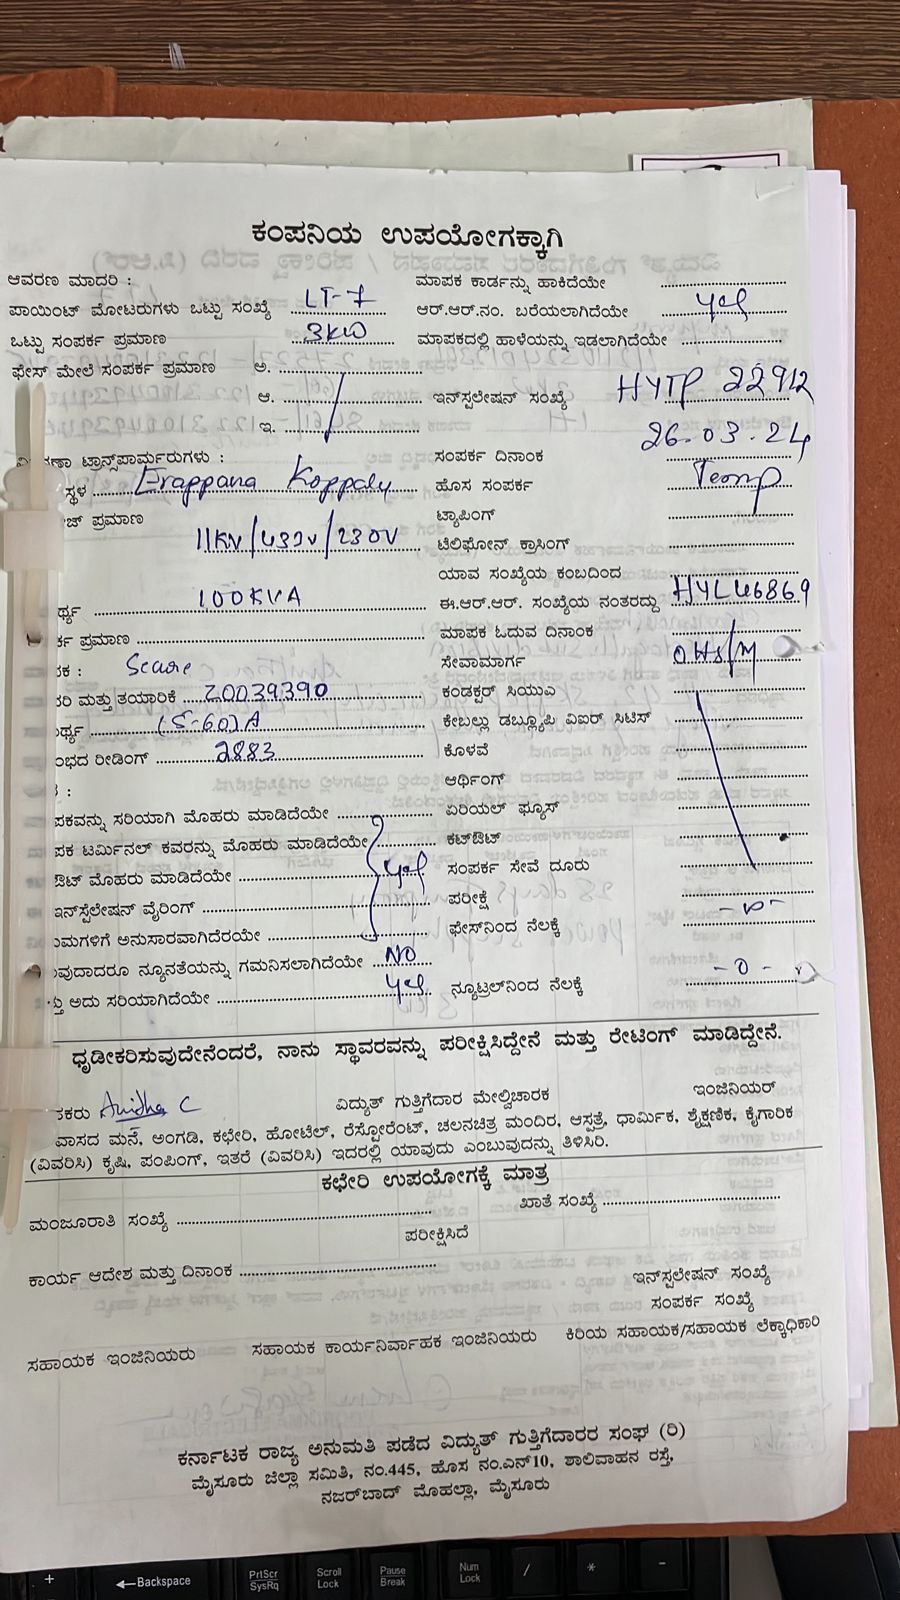 ಕಂಪನಿಯ ಉಪಯೋಗಕ್ಕಾಗಿ
ಆವರಣ ಮಾದರಿ :
ಮಾಪಕ ಕಾರ್ಡನ್ನು ಹಾಕಿದೆಯೇ
ಪಾಯಿಂಟ್ ಮೋಟರುಗಳು ಒಟ್ಟು ಸಂಖ್ಯೆ LT-7
ಆರ್.ಆರ್.ನಂ. ಬರೆಯಲಾಗಿದೆಯೇ yes
ಒಟ್ಟು ಸಂಪರ್ಕ ಪ್ರಮಾಣ 3KW
ಮಾಪಕದಲ್ಲಿ ಹಾಳೆಯನ್ನು ಇಡಲಾಗಿದೆಯೇ
ಫೇಸ್ ಮೇಲೆ ಸಂಪರ್ಕ ಪ್ರಮಾಣ ಅ.
ಆ.
ಇನ್‌ಸ್ಪಲೇಷನ್ ಸಂಖ್ಯೆ HYTP 22912
ಇ.
ಟ್ರಾನ್ಸ್‌ಪಾರ್ಮರುಗಳು :
ಸಂಪರ್ಕ ದಿನಾಂಕ 26.03.24
ಸ್ಥಳ Erappana Koppalu
ಹೊಸ ಸಂಪರ್ಕ Temp
ಜ್ ಪ್ರಮಾಣ 11KV/432V/230V
ಟ್ಯಾಪಿಂಗ್
ಟಿಲಿಫೋನ್ ಕ್ರಾಸಿಂಗ್
ಯಾವ ಸಂಖ್ಯೆಯ ಕಂಬದಿಂದ
ರ್ಥ್ಯ 100KVA
ಈ.ಆರ್.ಆರ್. ಸಂಖ್ಯೆಯ ನಂತರದ್ದು HYL46869
ರ್ಕ ಪ್ರಮಾಣ
ಮಾಪಕ ಓದುವ ದಿನಾಂಕ
ಪಕ : Secure
ಸೇವಾಮಾರ್ಗ OHS/M
ದರಿ ಮತ್ತು ತಯಾರಿಕೆ 20039390
ಕಂಡಕ್ಟರ್ ಸಿಯುಎ
ರ್ಥ್ಯ (5-60)A
ಕೇಬಲ್ಲು ಡಬ್ಲ್ಯೂಪಿ ವಿಐರ್ ಸಿಟಿಸ್
ಂಭದ ರೀಡಿಂಗ್ 2883
ಕೊಳವೆ
ಆರ್ಥಿಂಗ್
ಪಕವನ್ನು ಸರಿಯಾಗಿ ಮೊಹರು ಮಾಡಿದೆಯೇ
ಏರಿಯಲ್ ಫ್ಯೂಸ್
ಪಕ ಟರ್ಮಿನಲ್ ಕವರನ್ನು ಮೊಹರು ಮಾಡಿದೆಯೇ
ಕಟ್‌ಔಟ್
ಔಟ್ ಮೊಹರು ಮಾಡಿದೆಯೇ yes
ಸಂಪರ್ಕ ಸೇವೆ ದೂರು
ಇನ್‌ಸ್ಪೆಲೇಷನ್ ವೈರಿಂಗ್
ಪರೀಕ್ಷೆ
ಯಮಗಳಿಗೆ ಅನುಸಾರವಾಗಿದೆರಯೇ
ಫೇಸ್‌ನಿಂದ ನೆಲಕ್ಕೆ -0-
ವುದಾದರೂ ನ್ಯೂನತೆಯನ್ನು ಗಮನಿಸಲಾಗಿದೆಯೇ NO
ತ್ತು ಅದು ಸರಿಯಾಗಿದೆಯೇ yes
ನ್ಯೂಟ್ರಲ್‌ನಿಂದ ನೆಲಕ್ಕೆ -0-
ಧೃಡೀಕರಿಸುವುದೇನೆಂದರೆ, ನಾನು ಸ್ಥಾವರವನ್ನು ಪರೀಕ್ಷಿಸಿದ್ದೇನೆ ಮತ್ತು ರೇಟಿಂಗ್ ಮಾಡಿದ್ದೇನೆ.
ಕರು Anitha C ವಿದ್ಯುತ್ ಗುತ್ತಿಗೆದಾರ ಮೇಲ್ವಿಚಾರಕ ಇಂಜಿನಿಯರ್
ವಾಸದ ಮನೆ, ಅಂಗಡಿ, ಕಛೇರಿ, ಹೋಟೆಲ್, ರೆಸ್ಟೋರೆಂಟ್, ಚಲನಚಿತ್ರ ಮಂದಿರ, ಆಸ್ಪತ್ರೆ, ಧಾರ್ಮಿಕ, ಶೈಕ್ಷಣಿಕ, ಕೈಗಾರಿಕ
(ವಿವರಿಸಿ) ಕೃಷಿ, ಪಂಪಿಂಗ್, ಇತರೆ (ವಿವರಿಸಿ) ಇದರಲ್ಲಿ ಯಾವುದು ಎಂಬುವುದನ್ನು ತಿಳಿಸಿರಿ.
ಕಛೇರಿ ಉಪಯೋಗಕ್ಕೆ ಮಾತ್ರ
ಮಂಜೂರಾತಿ ಸಂಖ್ಯೆ ಖಾತೆ ಸಂಖ್ಯೆ
ಪರೀಕ್ಷಿಸಿದೆ
ಕಾರ್ಯ ಆದೇಶ ಮತ್ತು ದಿನಾಂಕ
ಇನ್‌ಸ್ಪಲೇಷನ್ ಸಂಖ್ಯೆ
ಸಂಪರ್ಕ ಸಂಖ್ಯೆ
ಸಹಾಯಕ ಇಂಜಿನಿಯರು ಸಹಾಯಕ ಕಾರ್ಯನಿರ್ವಾಹಕ ಇಂಜಿನಿಯರು ಕಿರಿಯ ಸಹಾಯಕ/ಸಹಾಯಕ ಲೆಕ್ಕಾಧಿಕಾರಿ
ಕರ್ನಾಟಕ ರಾಜ್ಯ ಅನುಮತಿ ಪಡೆದ ವಿದ್ಯುತ್ ಗುತ್ತಿಗೆದಾರರ ಸಂಘ (ರಿ)
ಮೈಸೂರು ಜಿಲ್ಲಾ ಸಮಿತಿ, ನಂ.445, ಹೊಸ ನಂ.ಎನ್10, ಶಾಲಿವಾಹನ ರಸ್ತೆ,
ನಜರ್‌ಬಾದ್ ಮೊಹಲ್ಲಾ, ಮೈಸೂರು
+ ←Backspace PrtScr SysRq Scroll Lock Pause Break Num Lock / * -